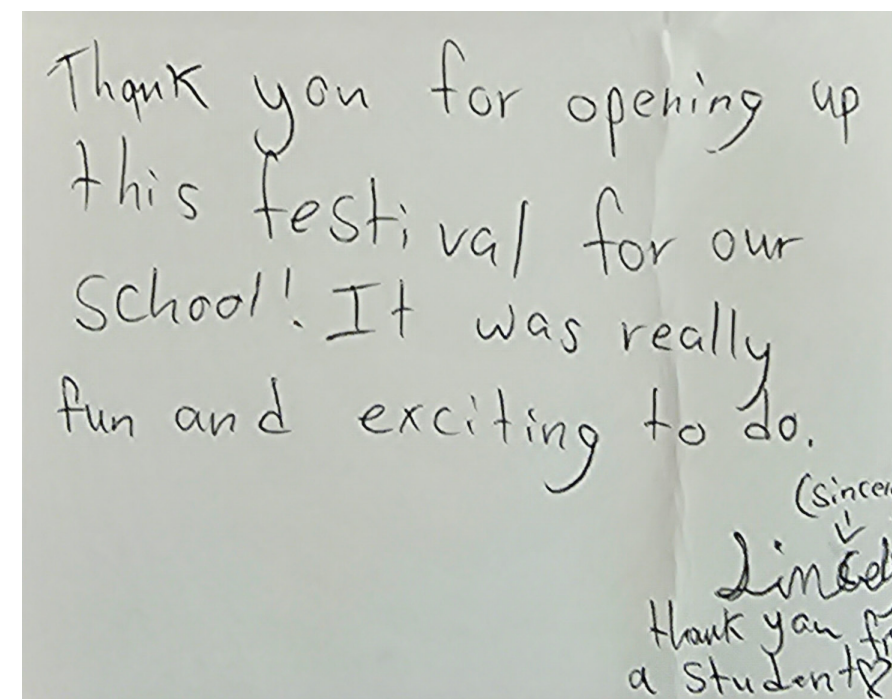 Thank you for opening up
this festival for our
school! It was really
fun and exciting to do.
(sincer
↓
thank you fr
a student♡